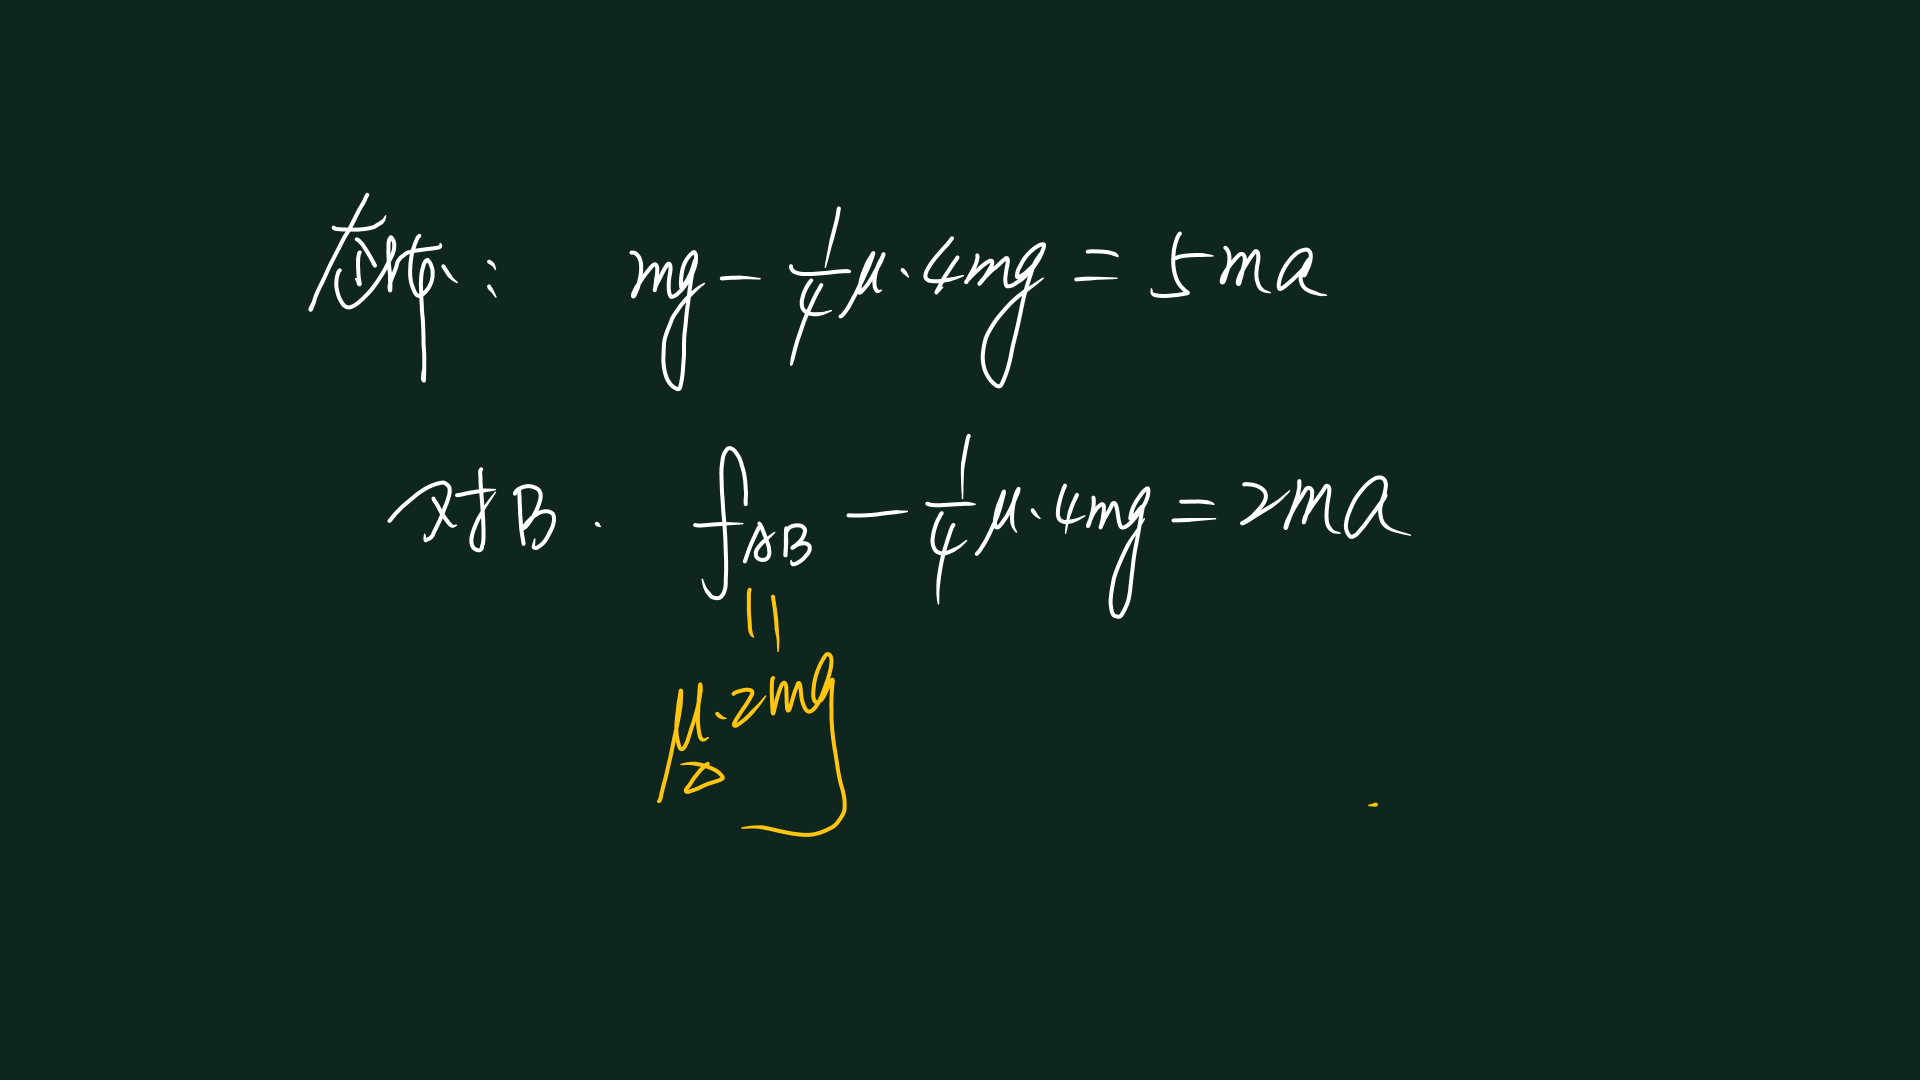 mg - 1/4 μ·4mg = 5ma
对B. f_AB - 1/4 μ·4mg = 2ma
||
μ·2mg